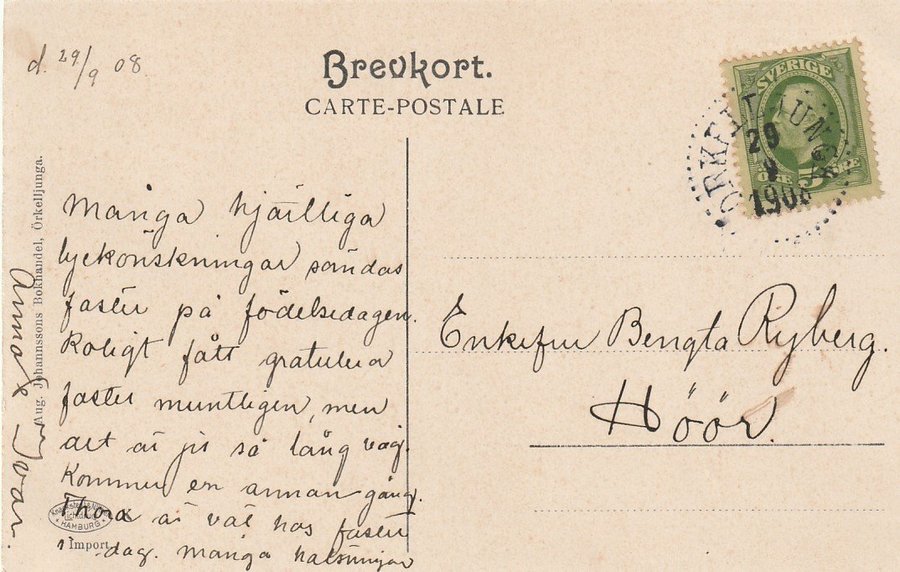 d. 29/9 08
Brevkort.
CARTE-POSTALE
SVERIGE
5 ÖRE
ÖRKELLJUNGA
29
9
1908
Många hjärtliga
lyckönskningar sändas
faster på födelsedagen.
Roligt fått gratulera
faster muntligen, men
det är ju så lång väg.
Kommer en annan gång.
Thora är väl hos faster
i dag. många hälsningar
Anna o Ivar.
Enkefru Bengta Ryberg.
Höör.
Aug. Johannssons Bokhandel, Örkelljunga.
HAMBURG
K
Import